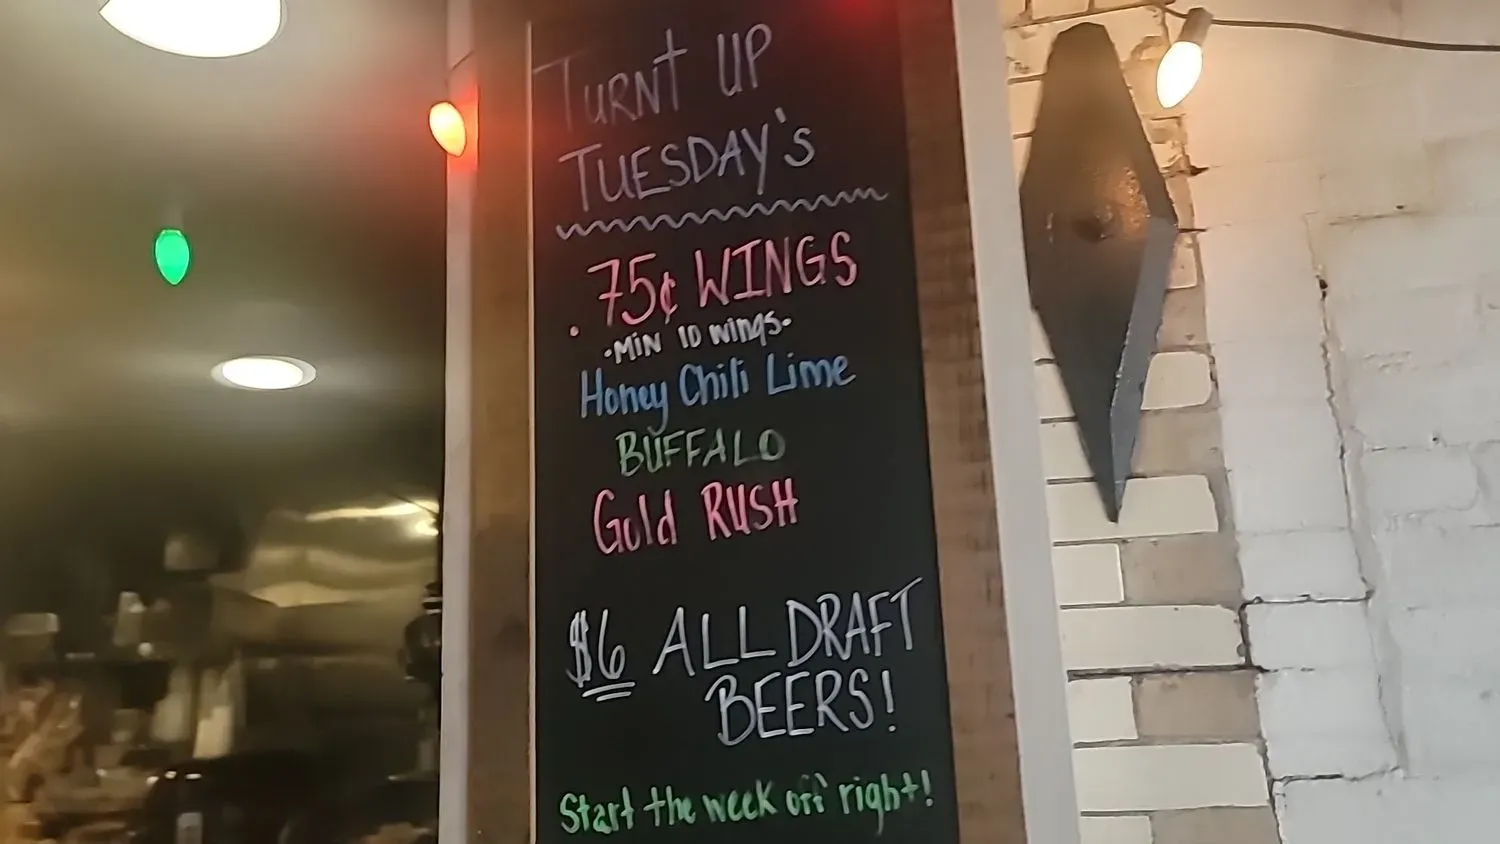 TURNT UP
TUESDAY'S
75¢ WINGS
·MIN 10 wings·
Honey Chili Lime
BUFFALO
Gold RUSH
$6 ALL DRAFT
BEERS!
Start the week off right!